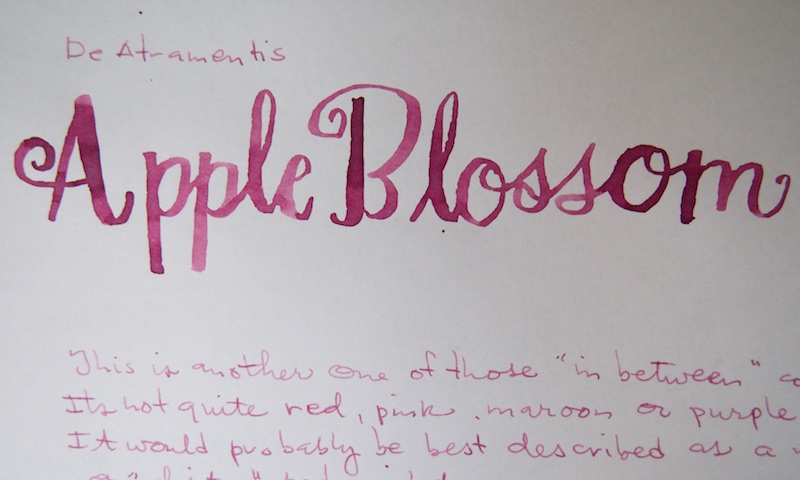 De Atramentis
Apple Blossom
This is another one of those "in between"
Its not quite red, pink, maroon or purple
It would probably be best described as a